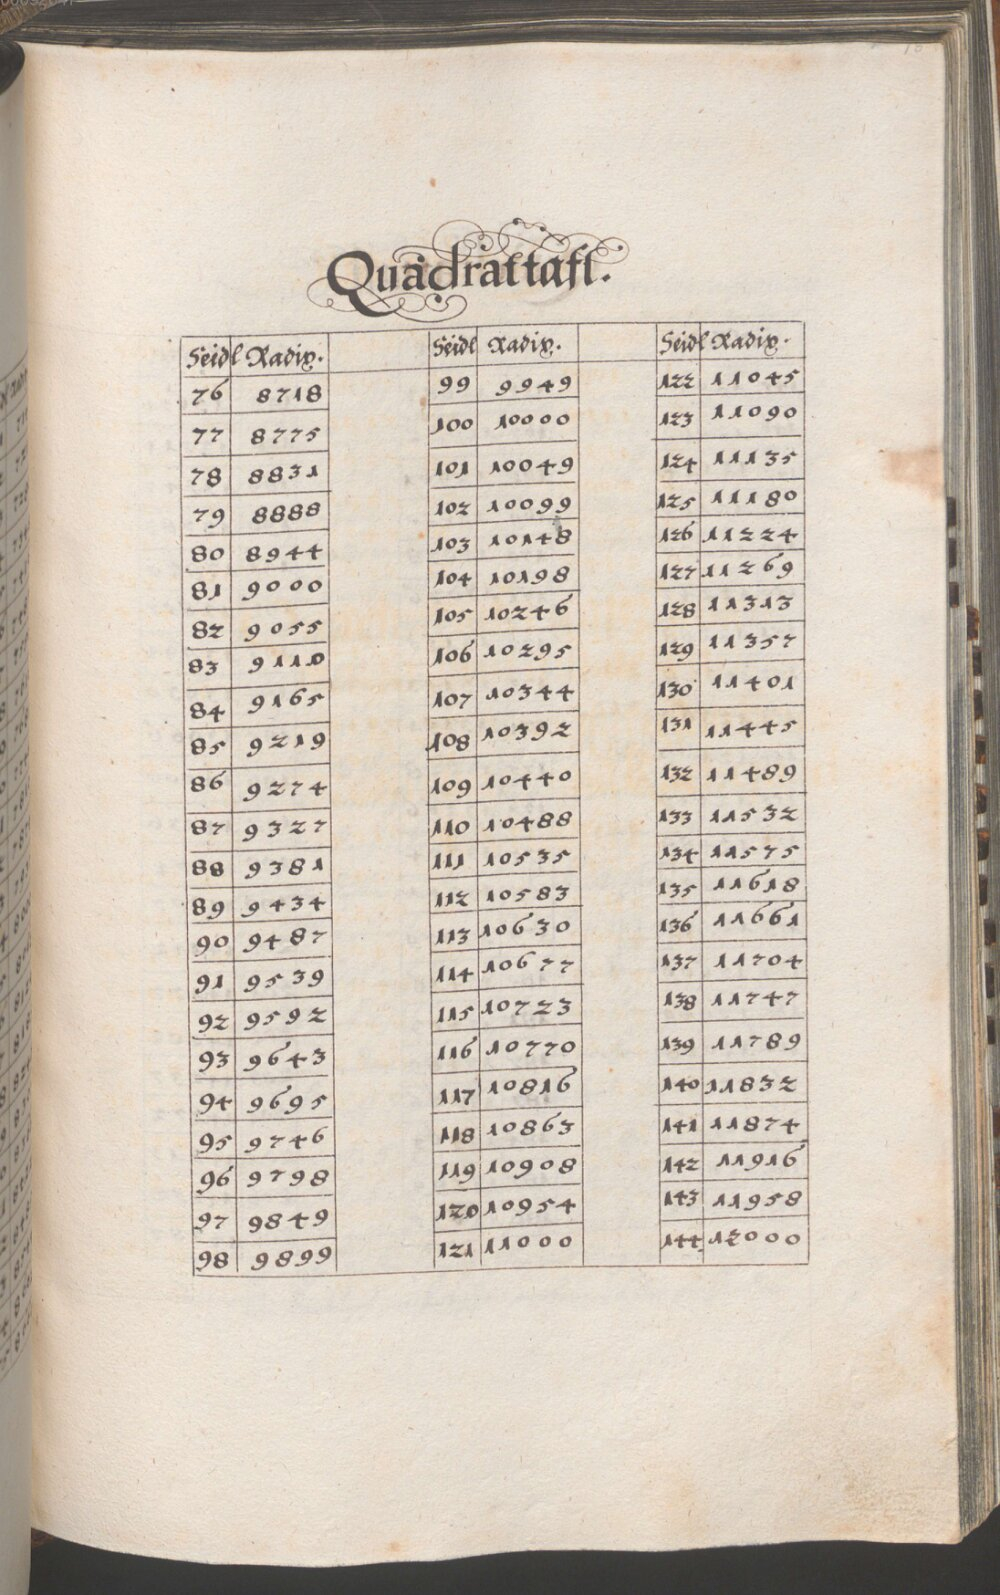 Quadrattafl.
Seidl Radix. Seidl Radix. Seidl Radix.
76 8718 99 9949 122 11045
77 8775 100 10000 123 11090
78 8831 101 10049 124 11135
79 8888 102 10099 125 11180
80 8944 103 10148 126 11224
81 9000 104 10198 127 11269
82 9055 105 10246 128 11313
83 9110 106 10295 129 11357
84 9165 107 10344 130 11401
85 9219 108 10392 131 11445
86 9274 109 10440 132 11489
87 9327 110 10488 133 11532
88 9381 111 10535 134 11575
89 9434 112 10583 135 11618
90 9487 113 10630 136 11661
91 9539 114 10677 137 11704
92 9592 115 10723 138 11747
93 9643 116 10770 139 11789
94 9695 117 10816 140 11832
95 9746 118 10863 141 11874
96 9798 119 10908 142 11916
97 9849 120 10954 143 11958
98 9899 121 11000 144 12000